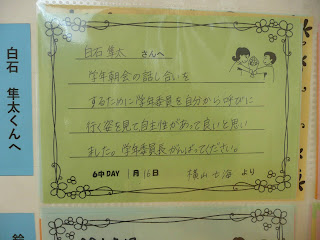 白石 隼太くんへ
白石 隼太 さんへ
学年朝会の話し合いを
するために学年委員を自分から呼びに
行く姿を見て自主性があって良いと思い
ました。学年委員長がんばってください。
6中DAY 1月16日 横山 より